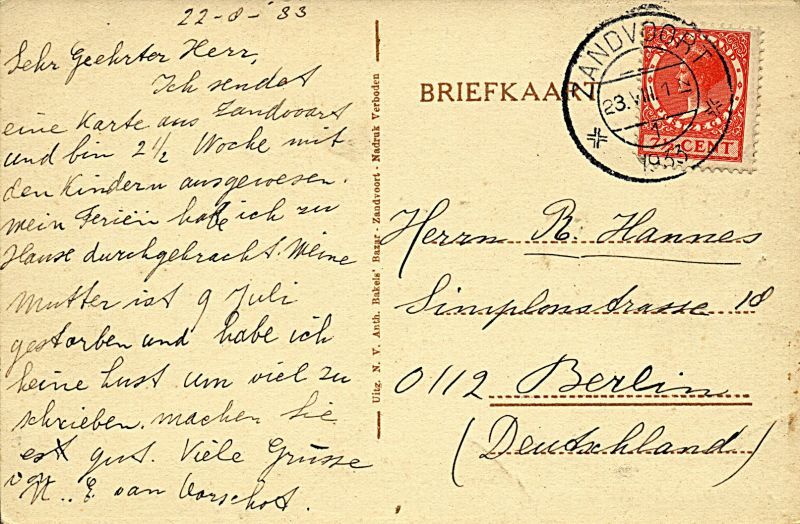 22-8-'33
Sehr Geehrter Herr,
Ich sendet
eine Karte aus Zandvoort
und bin 2 1/2 Woche mit
den Kindern ausgewesen.
Mein Ferien habe ich zu
Hause durchgebracht. Meine
Mutter ist 9 Juli
gestorben und habe ich
keine Lust um viel zu
schrieben. machen Sie
est gut. Viele Grüsse
von
E. van Vorschot.
Uitg. N. V. Anth. Bakels' Bazar - Zandvoort - Nadruk Verboden
BRIEFKAART
ZANDVOORT
23.VIII.1
1933
CENT
Herrn R. Hannes
Simplonstrasse 18
0112 Berlin
(Deutschland)